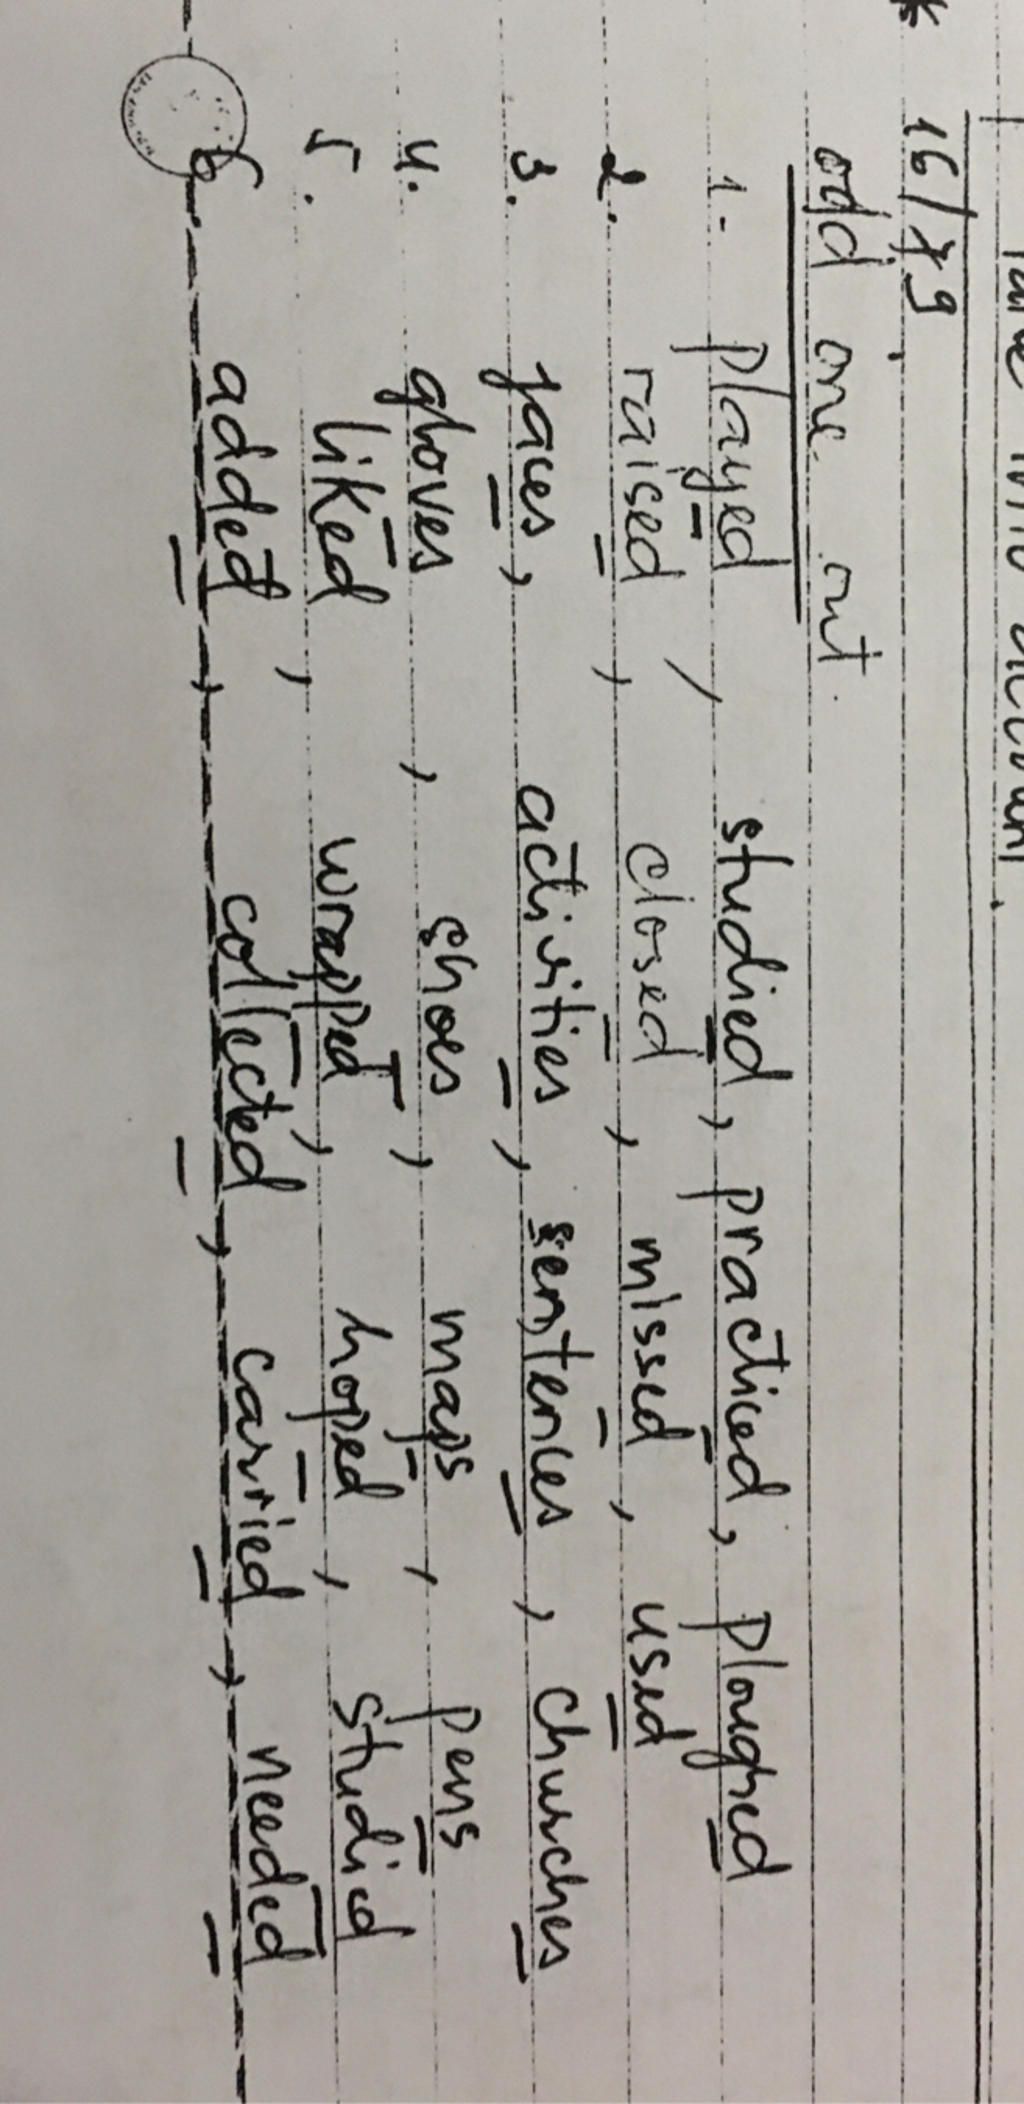 take into account.
* 16/9.
odd one out.
1. played, studied, practiced, ploughed
2. raised, closed, missed, used
3. faces, activities, sentences, churches
4. gloves, shoes, maps, pens
5. liked, wrapped, hoped, studied
6. added, collected, carried, needed